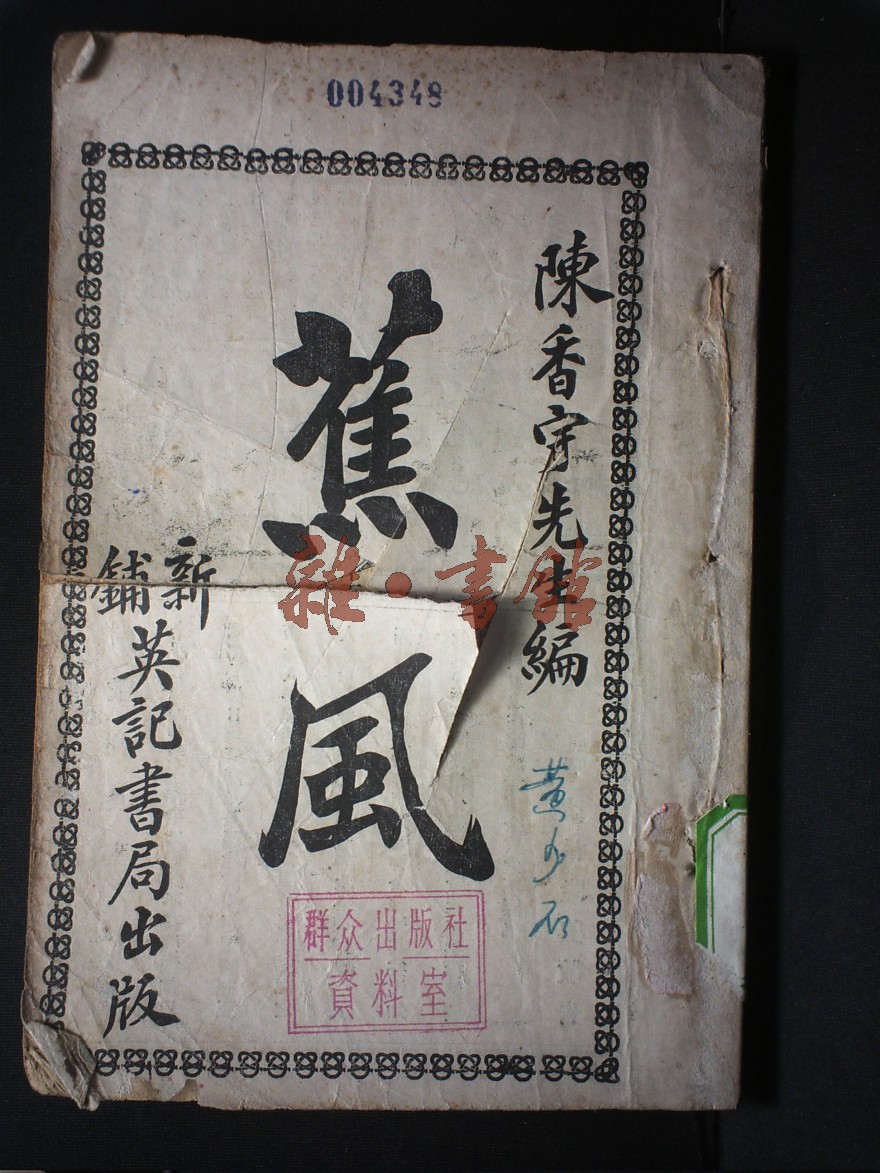 004348
陳香宇先生編
蕉風
新鋪
英記書局出版
黄少石
群众出版社
資料室
雜·書館